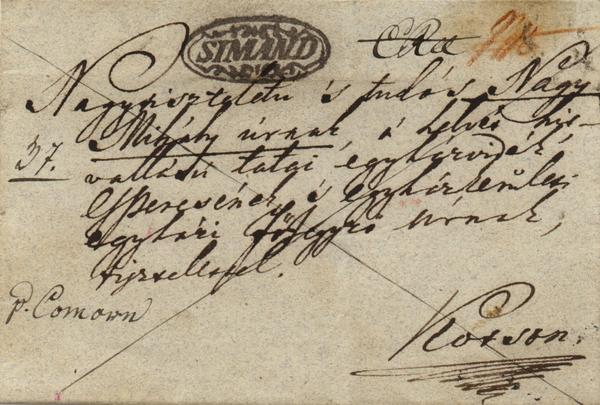 SIMÁND
Nagytiszteletü és tudós Nagy
Mihály úrnak, a helvét hit-
37.
vallásu tatai egyházvidék
Esperesének és egyházkerületi
egyházi főjegyző úrnak,
tisztelettel.
p. Comorn
Kocson.